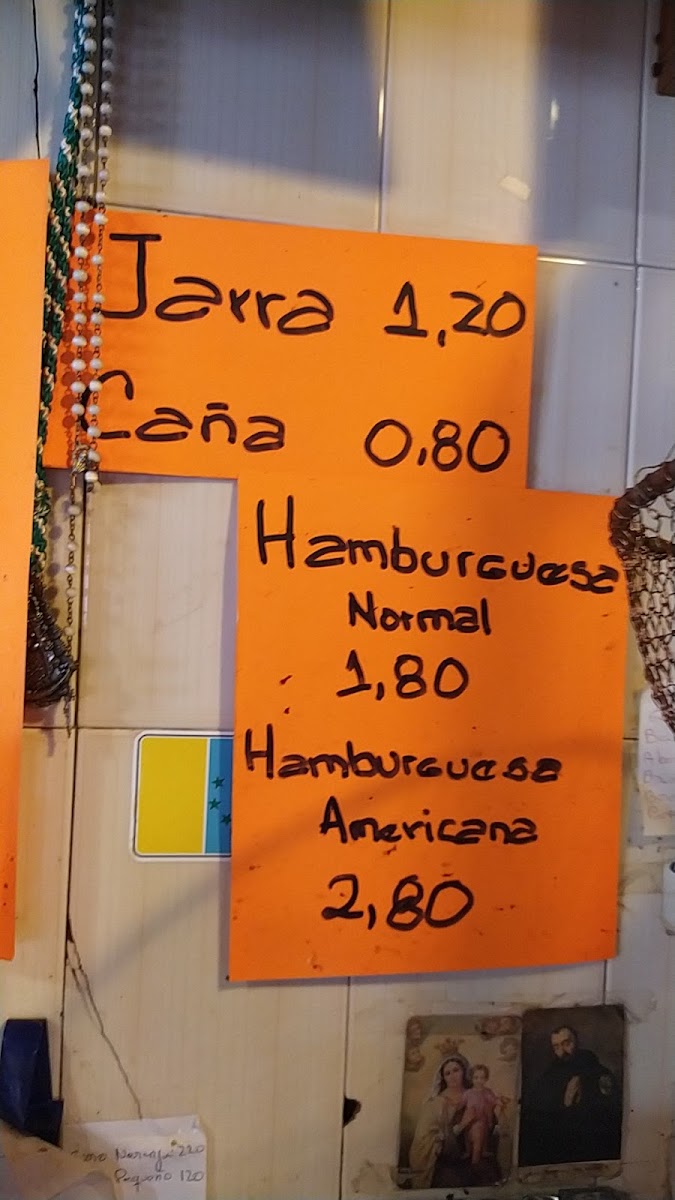 Jarra 1,20
Caña 0,80
Hamburguesa
Normal
1,80
Hamburguesa
Americana
2,80
Naranja 220
Pequeño 120